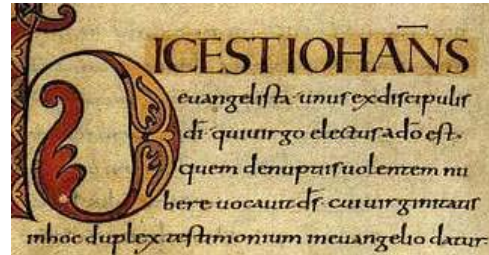 HIC EST IOHANNS
euangelista unus ex discipulis
di· qui uirgo electus a do est·
quem de nuptiis uolentem nu
bere uocauit ds· cui uirginitatis
in hoc duplex testimonium in euangelio datur·